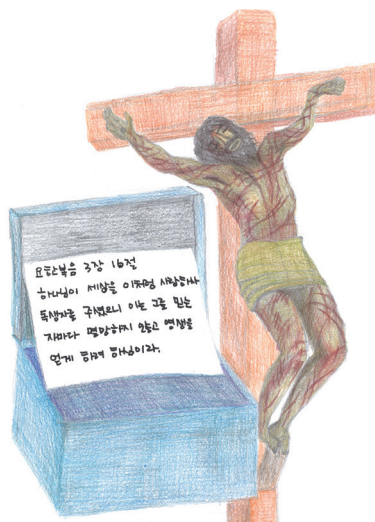 요한복음 3장 16절
하나님이 세상을 이처럼 사랑하사
독생자를 주셨으니 이는 그를 믿는
자마다 멸망하지 않고 영생을
얻게 하려 하심이라.